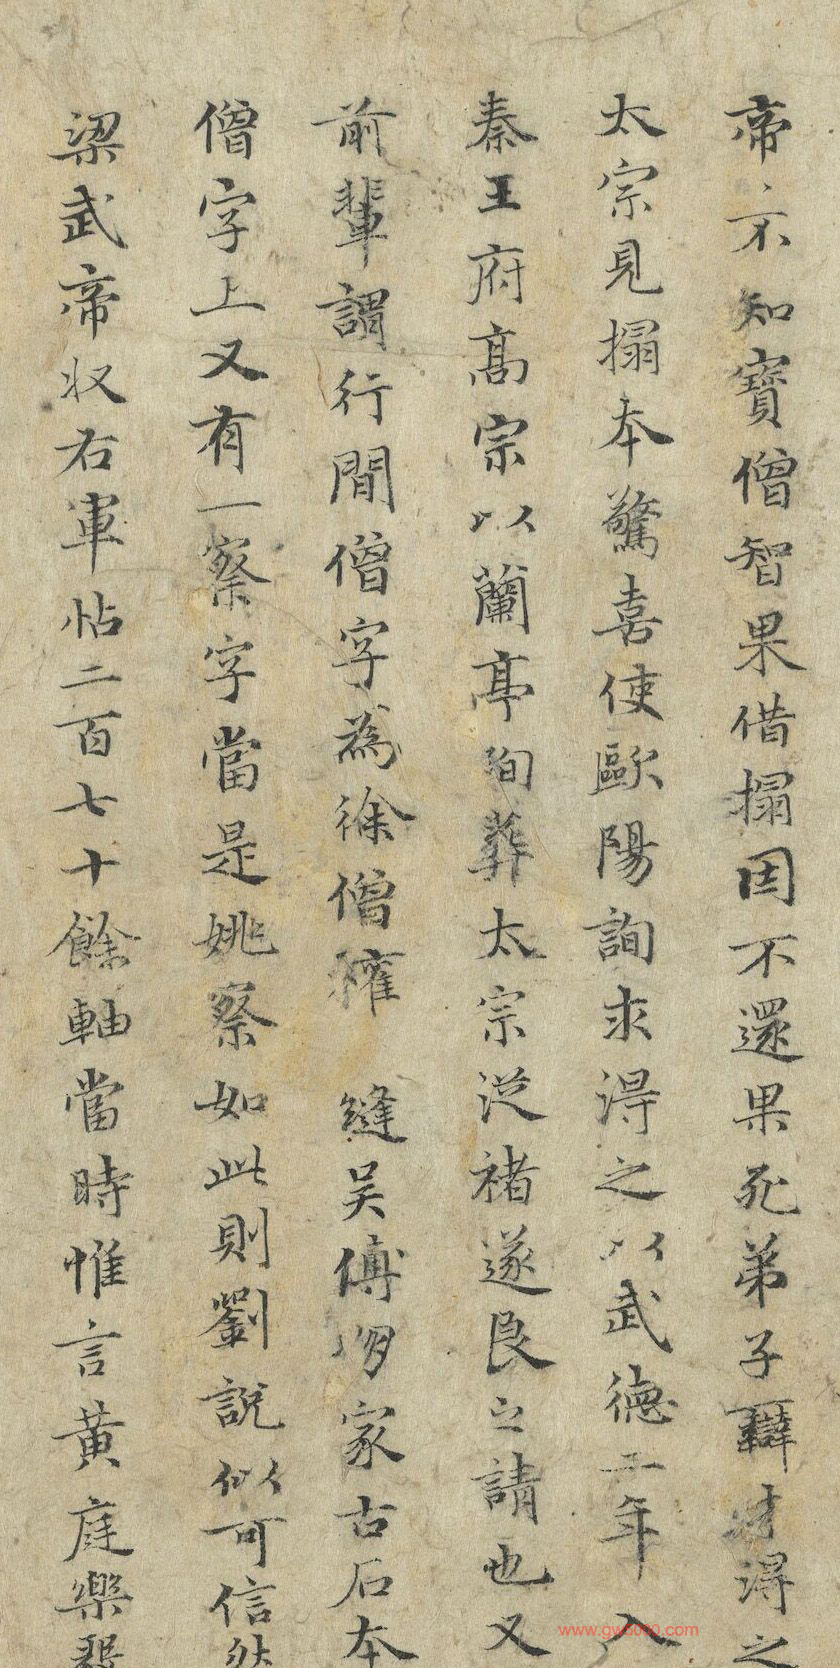 帝亦不知寶僧智果借搨因不還果死弟子辯才得之
太宗見搨本驚喜使歐陽詢求得之以武德二年入
秦王府髙宗以蘭亭殉葬太宗從褚遂良之請也又
前輩謂行間僧字為徐僧權 縫吴傅朋家古石本
僧字上又有一察字當是姚察如此則劉說似可信然
梁武帝收右軍帖二百七十餘軸當時惟言黄庭樂毅
www.gw5000.com